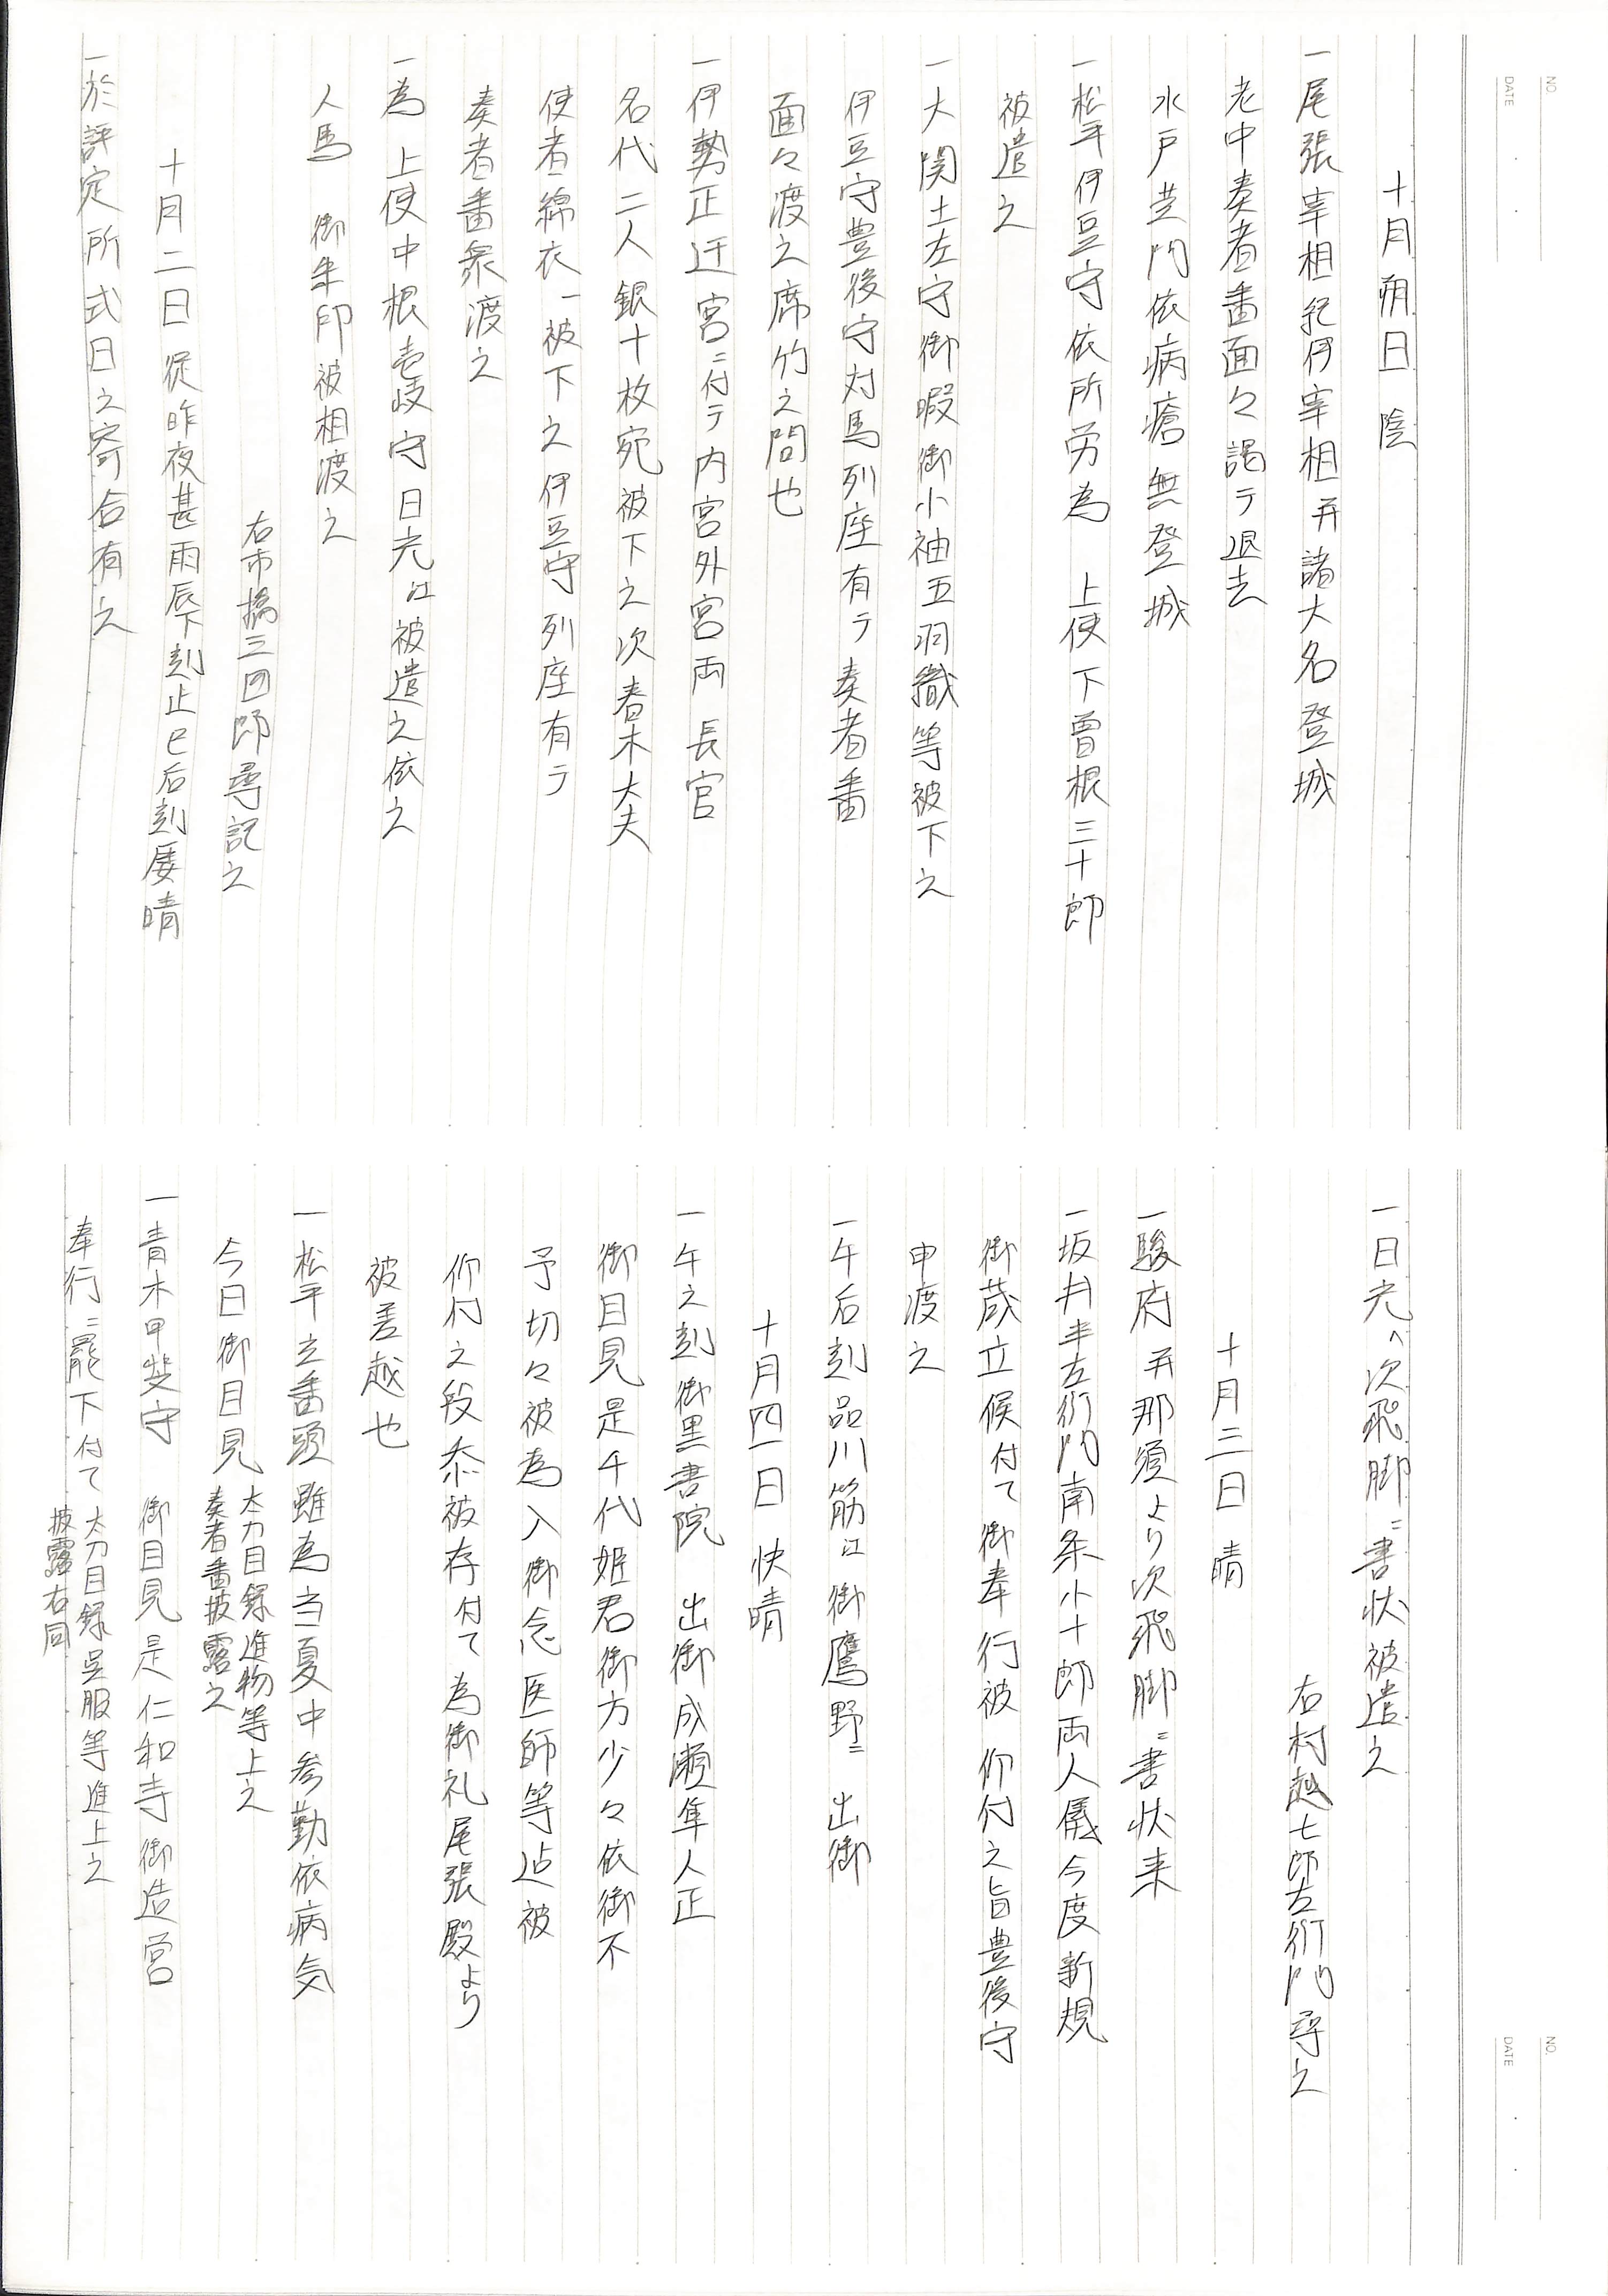 NO.
DATE
十月朔日 陰
一尾張宰相紀伊宰相并諸大名登城
老中奏者番面々謁テ退去
水戸芝門依病瘡無登城
一松平伊豆守依所労為 上使下曽根三十郎
被遣之
一大関土左守御暇御小袖五羽織等被下之
伊豆守豊後守対馬列座有テ奏者番
面々渡之席竹之間也
一伊勢正迁宮ニ付テ内宮外宮両長官
名代二人銀十枚宛被下之次春木大夫
使者綿衣一被下之伊豆守列座有テ
奏者番衆渡之
一為 上使中根壱岐守日光江被遣之依之
人馬 御朱印被相渡之
右市橋三四郎尋記之
十月二日 従昨夜甚雨辰下刻止巳后刻属晴
一於評定所式日之寄合有之
一日光へ次飛脚ニ書状被遣之
右村越七郎左衛門尋之
十月三日 晴
一駿府并那須より次飛脚ニ書状来
一坂井半左衛門南条小十郎両人儀今度新規
御蔵立候付て御奉行被 仰付之旨豊後守
申渡之
一午后刻品川筋江御鷹野ニ 出御
十月四日 快晴
一午之刻御黒書院 出御成瀬隼人正
御目見是千代姫君御方少々依御不
予切々被為入御念医師等迠被
仰付之段忝被存付て為御礼尾張殿より
被差越也
一松平玄番頭雖為当夏中参勤依病気
今日御目見 太刀目録進物等上之
奏者番披露之
一青木甲斐守 御目見是仁和寺御造営
奉行ニ罷下付て 太刀目録呉服等進上之
披露右同
NO.
DATE